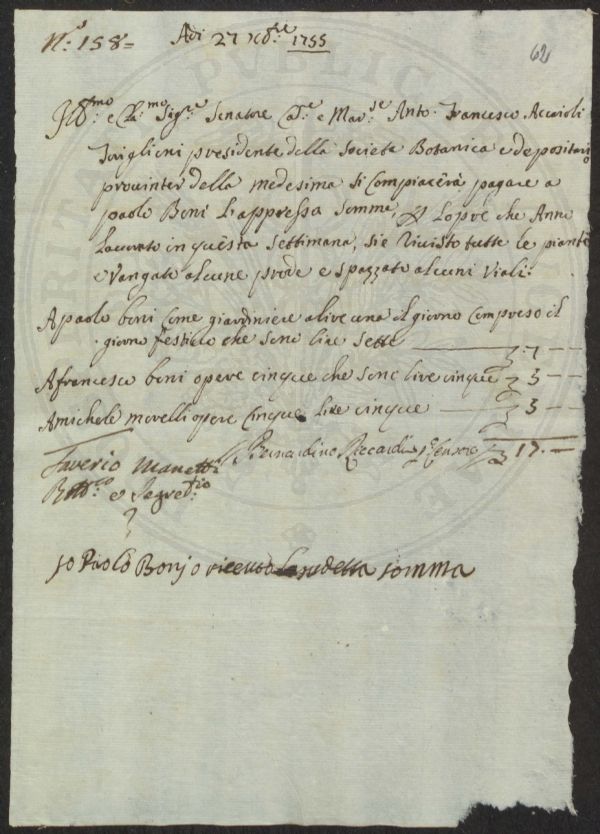 N.° 158=
Adi 27 Xbre 1755
62
Ill.mo e Cla.mo Sig.re Senatore Ca.e e Mar.se Anto. Francesco Accaioli
presidente della Societa Botanica e depositario
della medesima si Compiacerà pagare a
paolo Boni L'appressa Somma, Lopre che Anno
Lauorato in questa settimana, si è tutte le piante
e Vangate alcune prode e spazzato alcuni Viali:
A paolo boni Come giardiniere a live una il giorno Compreso il
giorno festivo che sono lire Sette 7
A francesco boni opere cinque che sono live cinque 5
A michele morelli opere Cinque live cinque 5
Bernardino Riccardi p.° Censore 17.
Saverio Manetti
e Segret.rio
Io Paolo Bonj o riceuto La sudetta somma